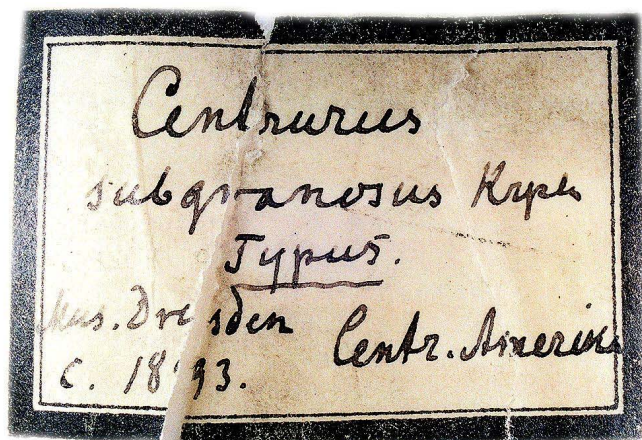 Centrurus
subgranosus Krpln
Typus.
Mus. Dresden
Centr. Amerika
c. 1893.